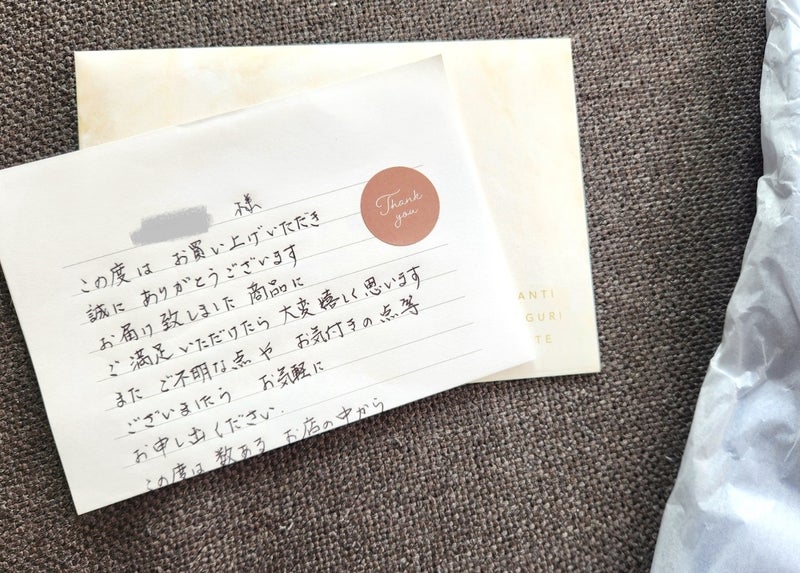 様
この度は お買い上げいただき
誠に ありがとうございます
お届け致しました 商品に
ご満足いただけたら 大変嬉しく思います
また ご不明な点や お気付きの点等
ございましたら お気軽に
お申し出ください.
この度は 数ある お店の中から
Thank
you
ANTI
GURI
TE